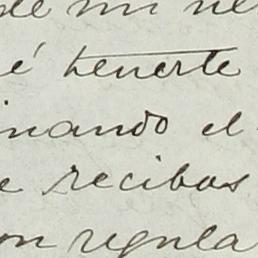 de mi ne
é tenerte
inando el
e recibas
on regula